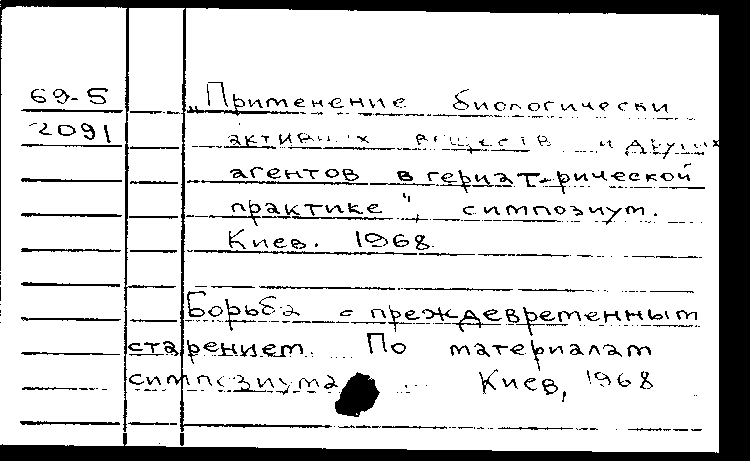 69-5 „Применение биологически
2091 активных веществ и других
агентов в гериат-рической
практике", симпозиум.
Киев. 1968
Борьба с преждевременным
старением. По материалам
симпозиума ... Киев, 1968